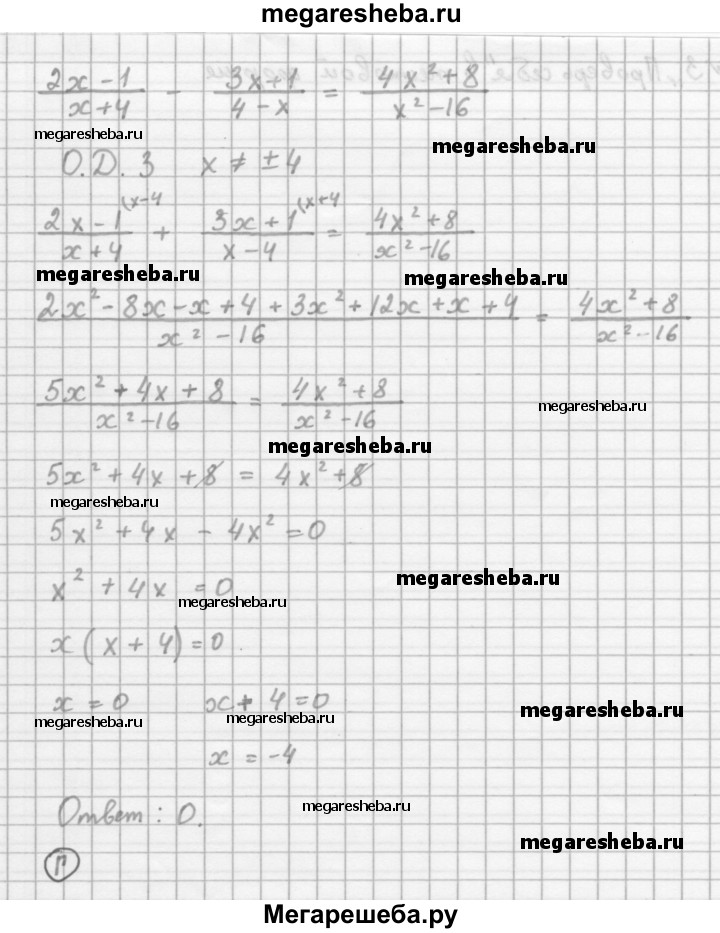 megaresheba.ru
(2x-1)/(x+4) - (3x+1)/(4-x) = (4x²+8)/(x²-16)
megaresheba.ru
megaresheba.ru
О.Д.З x ≠ ±4
(2x-1)/(x+4) (x-4 + (3x+1)/(x-4) (x+4 = (4x²+8)/(x²-16)
megaresheba.ru
megaresheba.ru
(2x²-8x-x+4+3x²+12x+x+4)/(x²-16) = (4x²+8)/(x²-16)
(5x²+4x+8)/(x²-16) = (4x²+8)/(x²-16)
megaresheba.ru
megaresheba.ru
5x²+4x+8 = 4x²+8
megaresheba.ru
5x²+4x-4x²=0
x²+4x=0
megaresheba.ru
megaresheba.ru
x(x+4)=0
x=0 x+4=0
megaresheba.ru
megaresheba.ru
megaresheba.ru
x=-4
Ответ: 0.
megaresheba.ru
megaresheba.ru
Г
Мегарешеба.ру